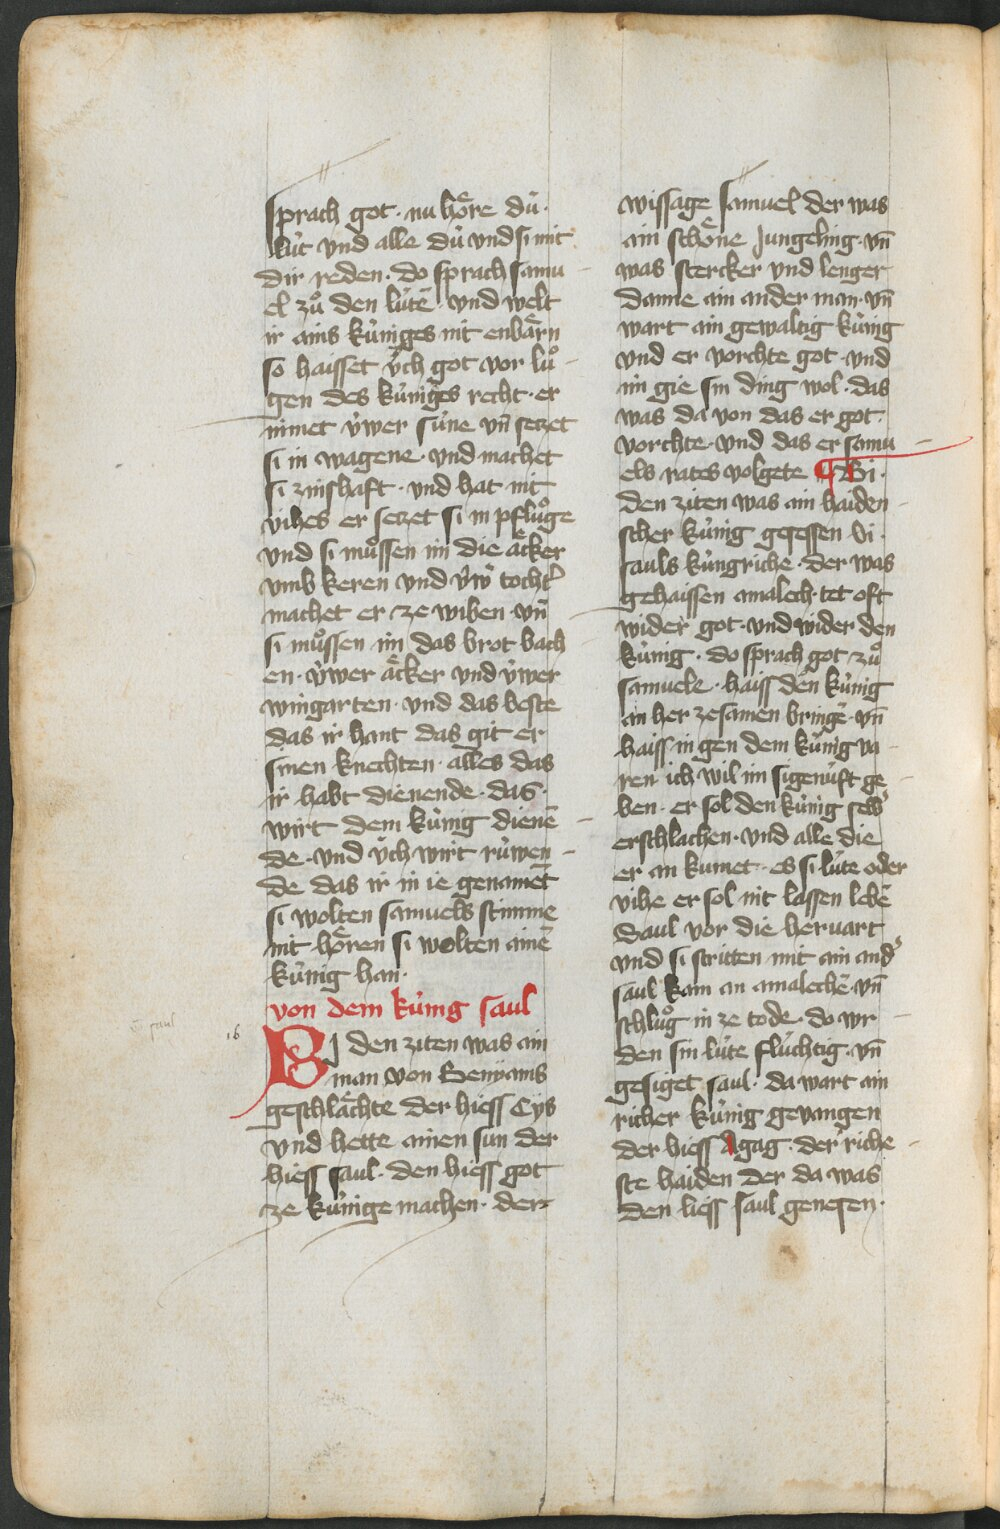 sprach got · nu hoͤre du̍ ·
lu̍t vnd alle du̍ vnd si mit
dir reden · do sprach samu
el zuͦ den lu̍tē · vnd welt
ir ains ku̍niges nit enbaͤrn
so haisset v̍ch got vor luͦ
gen des ku̍niges recht · er
nimet v̍wer su̍ne vn̄ seczet
si in wagene · vnd machet
si zinshaft · vnd hat nit
vihes er seczet si in pfluͦge
vnd si muͦssen im die aͤcker
vmb keren vnd v̍w̍ tocht̍
machet er ze wiben · vn̄
si muͦssen im das brot bach
en · v̍wer aͤcker vnd v̍wer
wingarten · vnd das beste
das ir hant das git er
sinen knechten · alles das
ir habt dienende · das ·
wirt dem ku̍nig dienē
de · vnd v̍ch wirt ru̍wen
de das ir in ie genamet
si wolten samuels stimme
nit hoͤren si wolten ainē
ku̍nig han ·
von dem ku̍nig saul
saul
16
BJ den ziten was ain
man von Benyamis
geschlaͤchte der hiess Cys
vnd hette ainen sun der
hiess saul · den hiess got
ze ku̍nige machen · der
wissage samuel der was
ain schoͤne Jungeling · vn̄
was stercker vnd lenger
danne ain ander man · vn̄
wart ain gewaltig ku̍nig
vnd er vorchte got · vnd
im gie sin ding wol · das
was da von das er got ·
vorchte · vnd das er samu
els rates volgete ¶ Bi ·
den ziten was ain haiden
scher ku̍nig gesessen bi ·
sauls ku̍ngriche · der was
gehaissen amalech · tet oft
wider got · vnd wider den
ku̍nig · do sprach got zuͦ
samuele · haiss den ku̍nig
ain her zesamen bringē · vn̄
haiss in gen dem ku̍nig va
ren · ich wil im sigenu̍ft ge
ben · er sol den ku̍nig selb̍
erschlachen · vnd alle die
er an kumet · es si lu̍te oder
vihe er sol nit lassen lebē
Saul vor die heruart
vnd si stritten mit ain and̍
saul kam an amalechē · vn̄
schluͦg in ze tode · do wr
den sin lu̍te flu̍chtig · vn̄
gesiget saul · da wart ain
richer ku̍nig gevangen
der hiess Agag · der riche
ste haiden der da was
den liess saul genesen ·